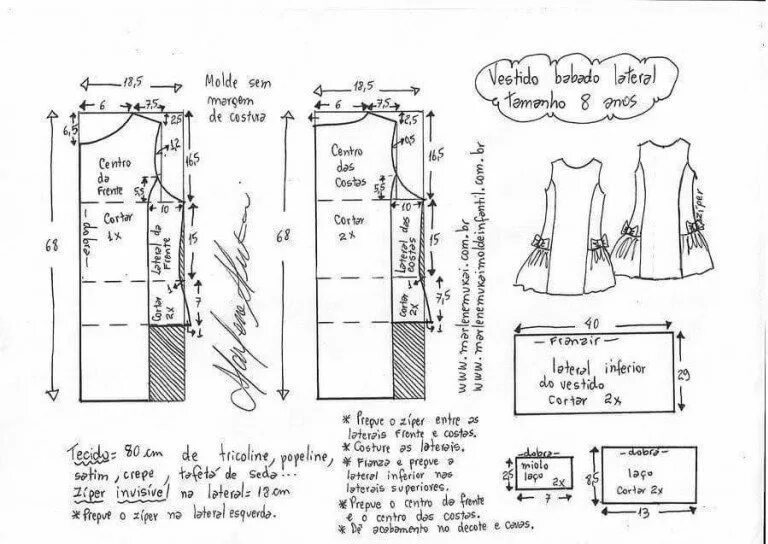 Vestido babado lateral
tamanho 8 anos
Molde sem
margem
de costura
18,5
6
7,5
6,5
2,5
1,2
16,5
Centro
da
Frente
5,5
10
68
dobra
Cortar
1x
Lateral da
Frente
15
1
7
Cortar
2x
1
18,5
6
7,5
2,5
0,5
16,5
Centro
das
Costas
5,5
10
68
Cortar
2x
Lateral das
costas
15
1
7,5
Cortar
2x
1
www.marlenemukai.com.br
www.marlenemukaimoldeinfantil.com.br
zíper
40
- Franzir -
lateral inferior
do vestido
cortar 2x
29
-dobra-
miolo
laço
2x
25
7
-dobra-
laço
Cortar 2x
8,5
13
Tecido= 80 cm de tricoline, popeline,
setim, crepe, tafetá de seda...
Zíper invisível na lateral= 18 cm
* Pregue o zíper na lateral esquerda.
* Pregue o zíper entre as
laterais frente e costas.
* Costure as laterais.
* Franza e pregue a
lateral inferior nas
laterais superiores.
* Pregue o centro da frente
e o centro das costas.
* Dê acabamento no decote e cavas.